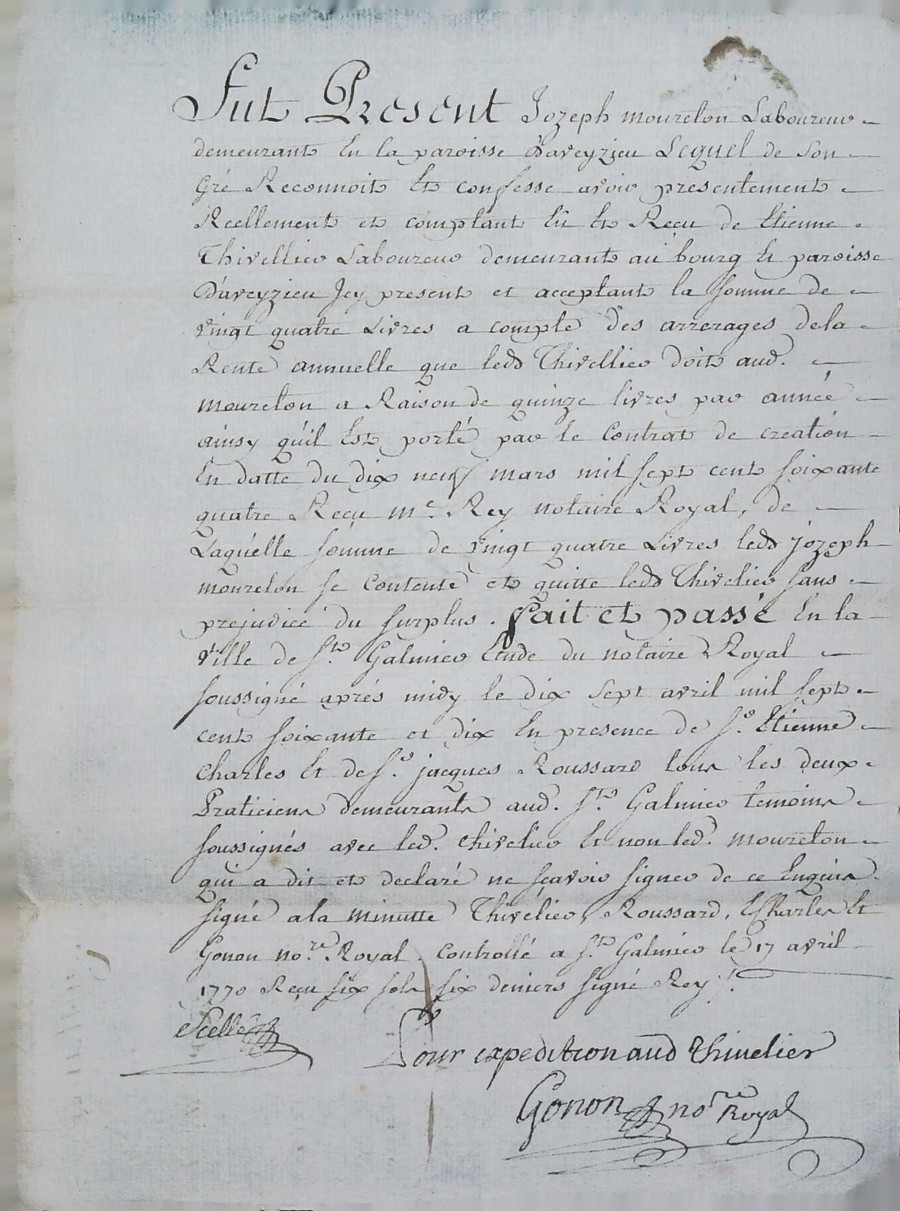 Fut Present Jozeph mourelon Laboureur
demeurant En la paroisse D'aveyzieu Lequel de Son
Gré Reconnoit Et confesse avoir presentement
Réellement et comptant Eû Et Reçu de Etienne
Thivellier Laboureur demeurant au bourg Et paroisse
D'aveyzieu Icy present et acceptant la somme de
vingt quatre Livres a compte des arrerages dela
Rente annuelle que ledt Thivellier doit aud.
mourelon a Raison de quinze livres par année
ainsy qu'il Est porté par le Contrat de creation
En datte du dix neuf mars mil sept cent soixante
quatre Reçu me. Rey notaire Royal, de
Laquelle somme de vingt quatre Livres ledt jozeph
mourelon se Contente et quitte ledt Thivelier sans
prejudice du surplus. fait et passé En la
ville de St. Galmier Etude du notaire Royal
soussigné aprés midy le dix sept avril mil sept
cent soixante et dix En presence de Sr. Etienne
Charles Et de Sr. jacques Roussard tous les deux
Praticiens demeurants aud. St. Galmier temoins
soussignés avec led. thivelier Et non led. mourelon
qui a dit et declaré ne scavoir signer de ce Enquis
signé ala minutte Thivelier, Roussard, ECharles Et
Gonon nore. Royal. Controllé a St. Galmier le 17 avril
1770 Reçu six sols six deniers signé Rey.
Scellé
Pour expedition aud Thivelier
Gonon nore Royal